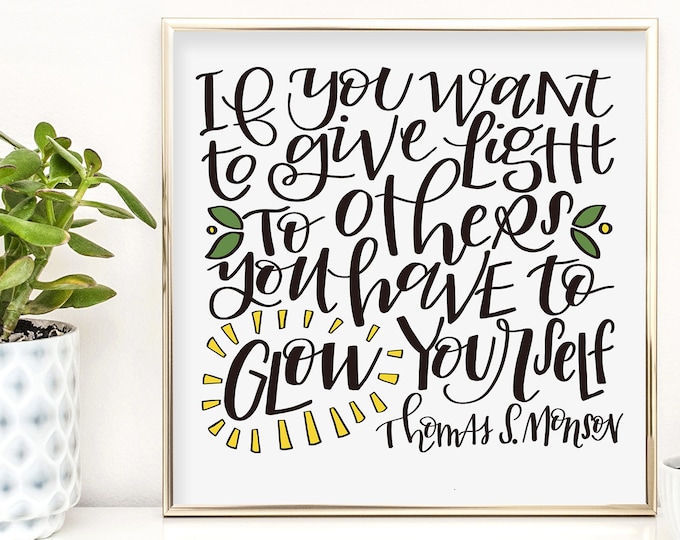 If you want
to give light
to others
you have to
Glow yourself
Thomas S. Monson